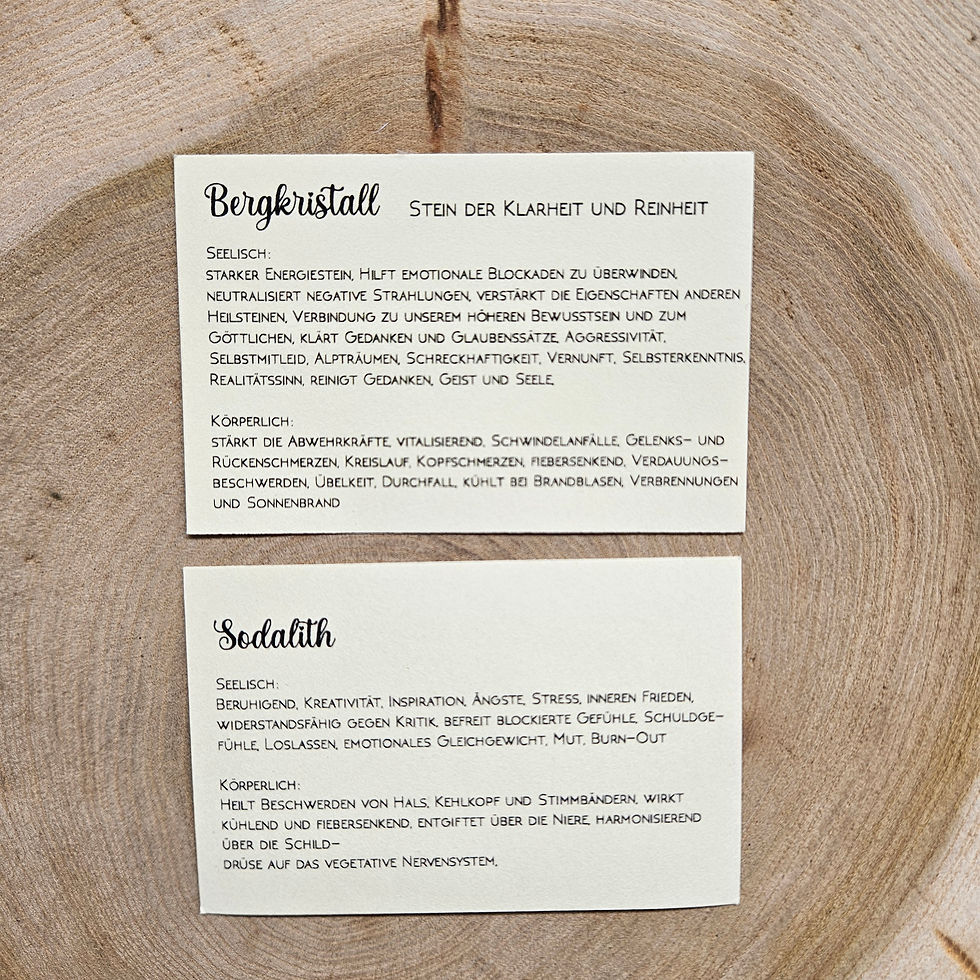 Bergkristall STEIN DER KLARHEIT UND REINHEIT
SEELISCH:
STARKER ENERGIESTEIN, HILFT EMOTIONALE BLOCKADEN ZU ÜBERWINDEN,
NEUTRALISIERT NEGATIVE STRAHLUNGEN, VERSTÄRKT DIE EIGENSCHAFTEN ANDEREN
HEILSTEINEN, VERBINDUNG ZU UNSEREM HÖHEREN BEWUSSTSEIN UND ZUM
GÖTTLICHEN, KLÄRT GEDANKEN UND GLAUBENSSÄTZE, AGGRESSIVITÄT,
SELBSTMITLEID, ALPTRÄUMEN, SCHRECKHAFTIGKEIT, VERNUNFT, SELBSTERKENNTNIS,
REALITÄTSSINN, REINIGT GEDANKEN, GEIST UND SEELE,
KÖRPERLICH:
STÄRKT DIE ABWEHRKRÄFTE, VITALISIEREND, SCHWINDELANFÄLLE, GELENKS- UND
RÜCKENSCHMERZEN, KREISLAUF, KOPFSCHMERZEN, FIEBERSENKEND, VERDAUUNGS-
BESCHWERDEN, ÜBELKEIT, DURCHFALL, KÜHLT BEI BRANDBLASEN, VERBRENNUNGEN
UND SONNENBRAND
Sodalith
SEELISCH:
BERUHIGEND, KREATIVITÄT, INSPIRATION, ÄNGSTE, STRESS, INNEREN FRIEDEN,
WIDERSTANDSFÄHIG GEGEN KRITIK, BEFREIT BLOCKIERTE GEFÜHLE, SCHULDGE-
FÜHLE, LOSLASSEN, EMOTIONALES GLEICHGEWICHT, MUT, BURN-OUT
KÖRPERLICH:
HEILT BESCHWERDEN VON HALS, KEHLKOPF UND STIMMBÄNDERN, WIRKT
KÜHLEND UND FIEBERSENKEND, ENTGIFTET ÜBER DIE NIERE, HARMONISIEREND
ÜBER DIE SCHILD-
DRÜSE AUF DAS VEGETATIVE NERVENSYSTEM,